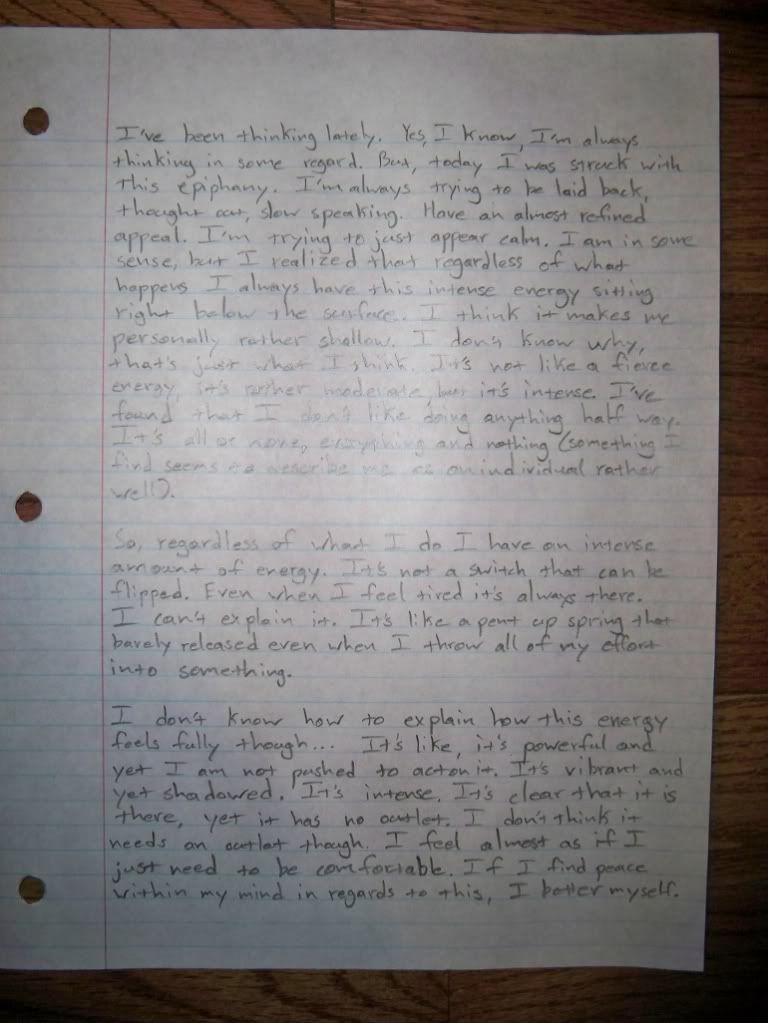 I've been thinking lately. Yes, I know, I'm always
thinking in some regard. But, today I was struck with
this epiphany. I'm always trying to be laid back,
thought out, slow speaking. Have an almost refined
appeal. I'm trying to just appear calm. I am in some
sense, but I realized that regardless of what
happens I always have this intense energy sitting
right below the surface. I think it makes me
personally rather shallow. I don't know why,
that's just what I think. It's not like a fierce
energy, it's rather moderate, but it's intense. I've
found that I don't like doing anything half way.
It's all or none, everything and nothing (something I
find seems to describe me as an individual rather
well).
So, regardless of what I do I have an intense
amount of energy. It's not a switch that can be
flipped. Even when I feel tired it's always there.
I can't explain it. It's like a pent up spring that
barely released even when I throw all of my effort
into something.
I don't know how to explain how this energy
feels fully though... It's like, it's powerful and
yet I am not pushed to act on it. It's vibrant and
yet shadowed. It's intense. It's clear that it is
there, yet it has no outlet. I don't think it
needs an outlet though. I feel almost as if I
just need to be comfortable. If I find peace
within my mind in regards to this, I better myself.